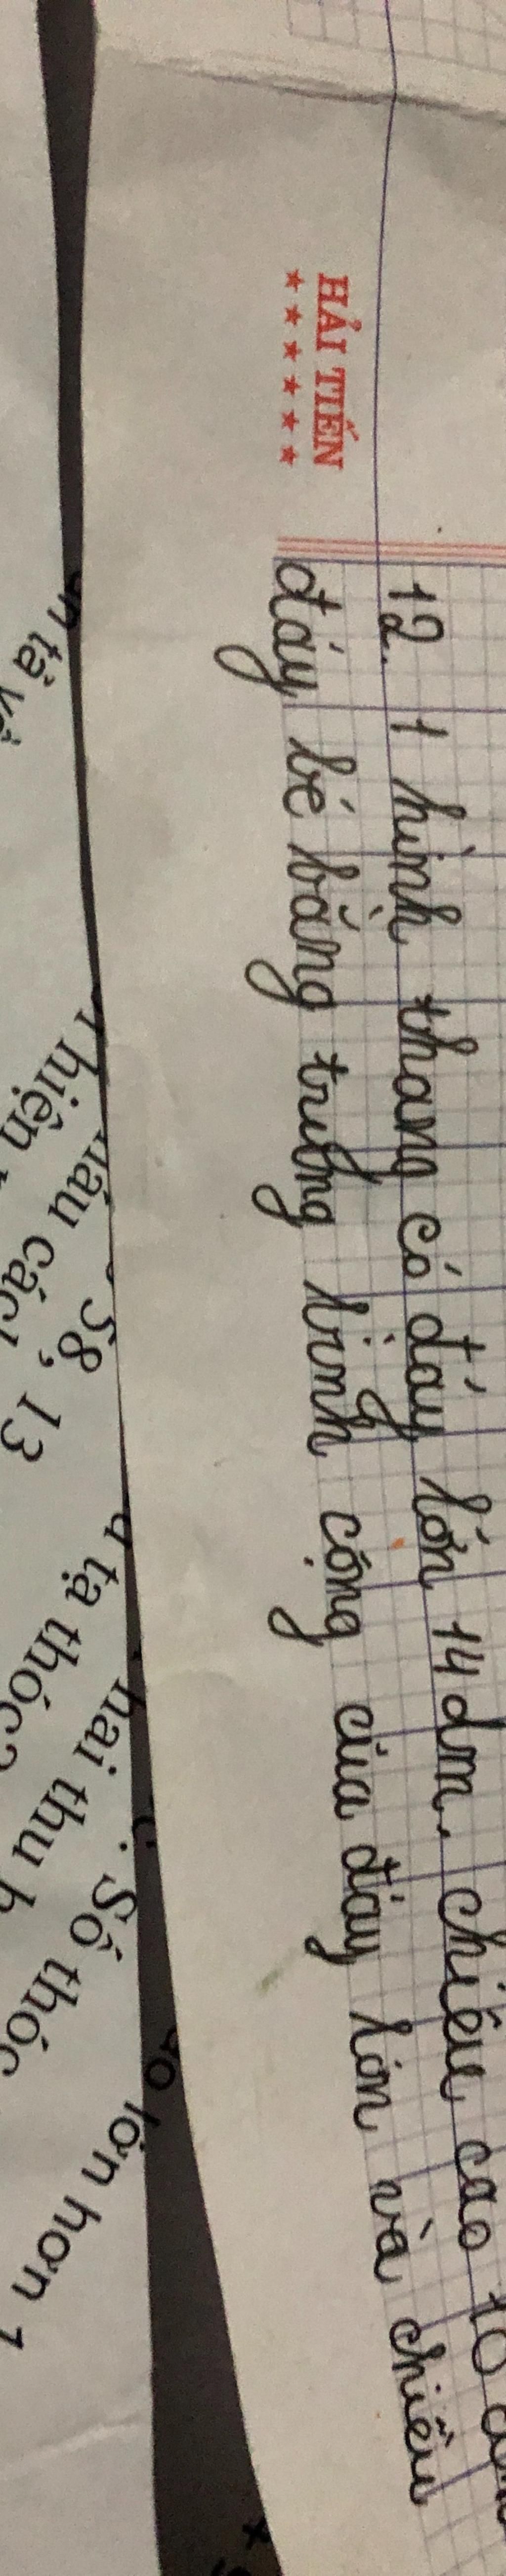 HẢI TIẾN
12. 1 hình thang có đáy lớn 14dm. chiều cao 10
đáy bé bằng trung bình cộng của đáy lớn và chiều
tả
hiện
58, 13
tạ thóc?
hai thu
Số thóc
lớn hơn 1